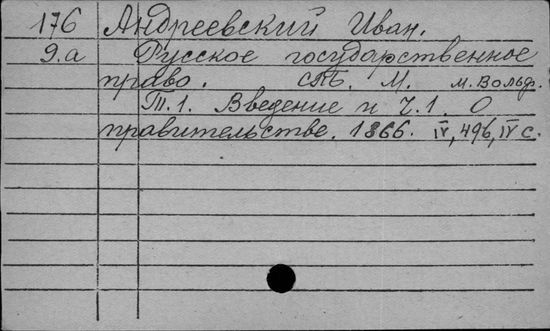 176 Андреевский Иван.
9.а Русское государственное
право. СПБ. М. М. Вольф.
Т.1. Введение и Ч.1. О
правительстве. 1866. IV, 496, IV с.